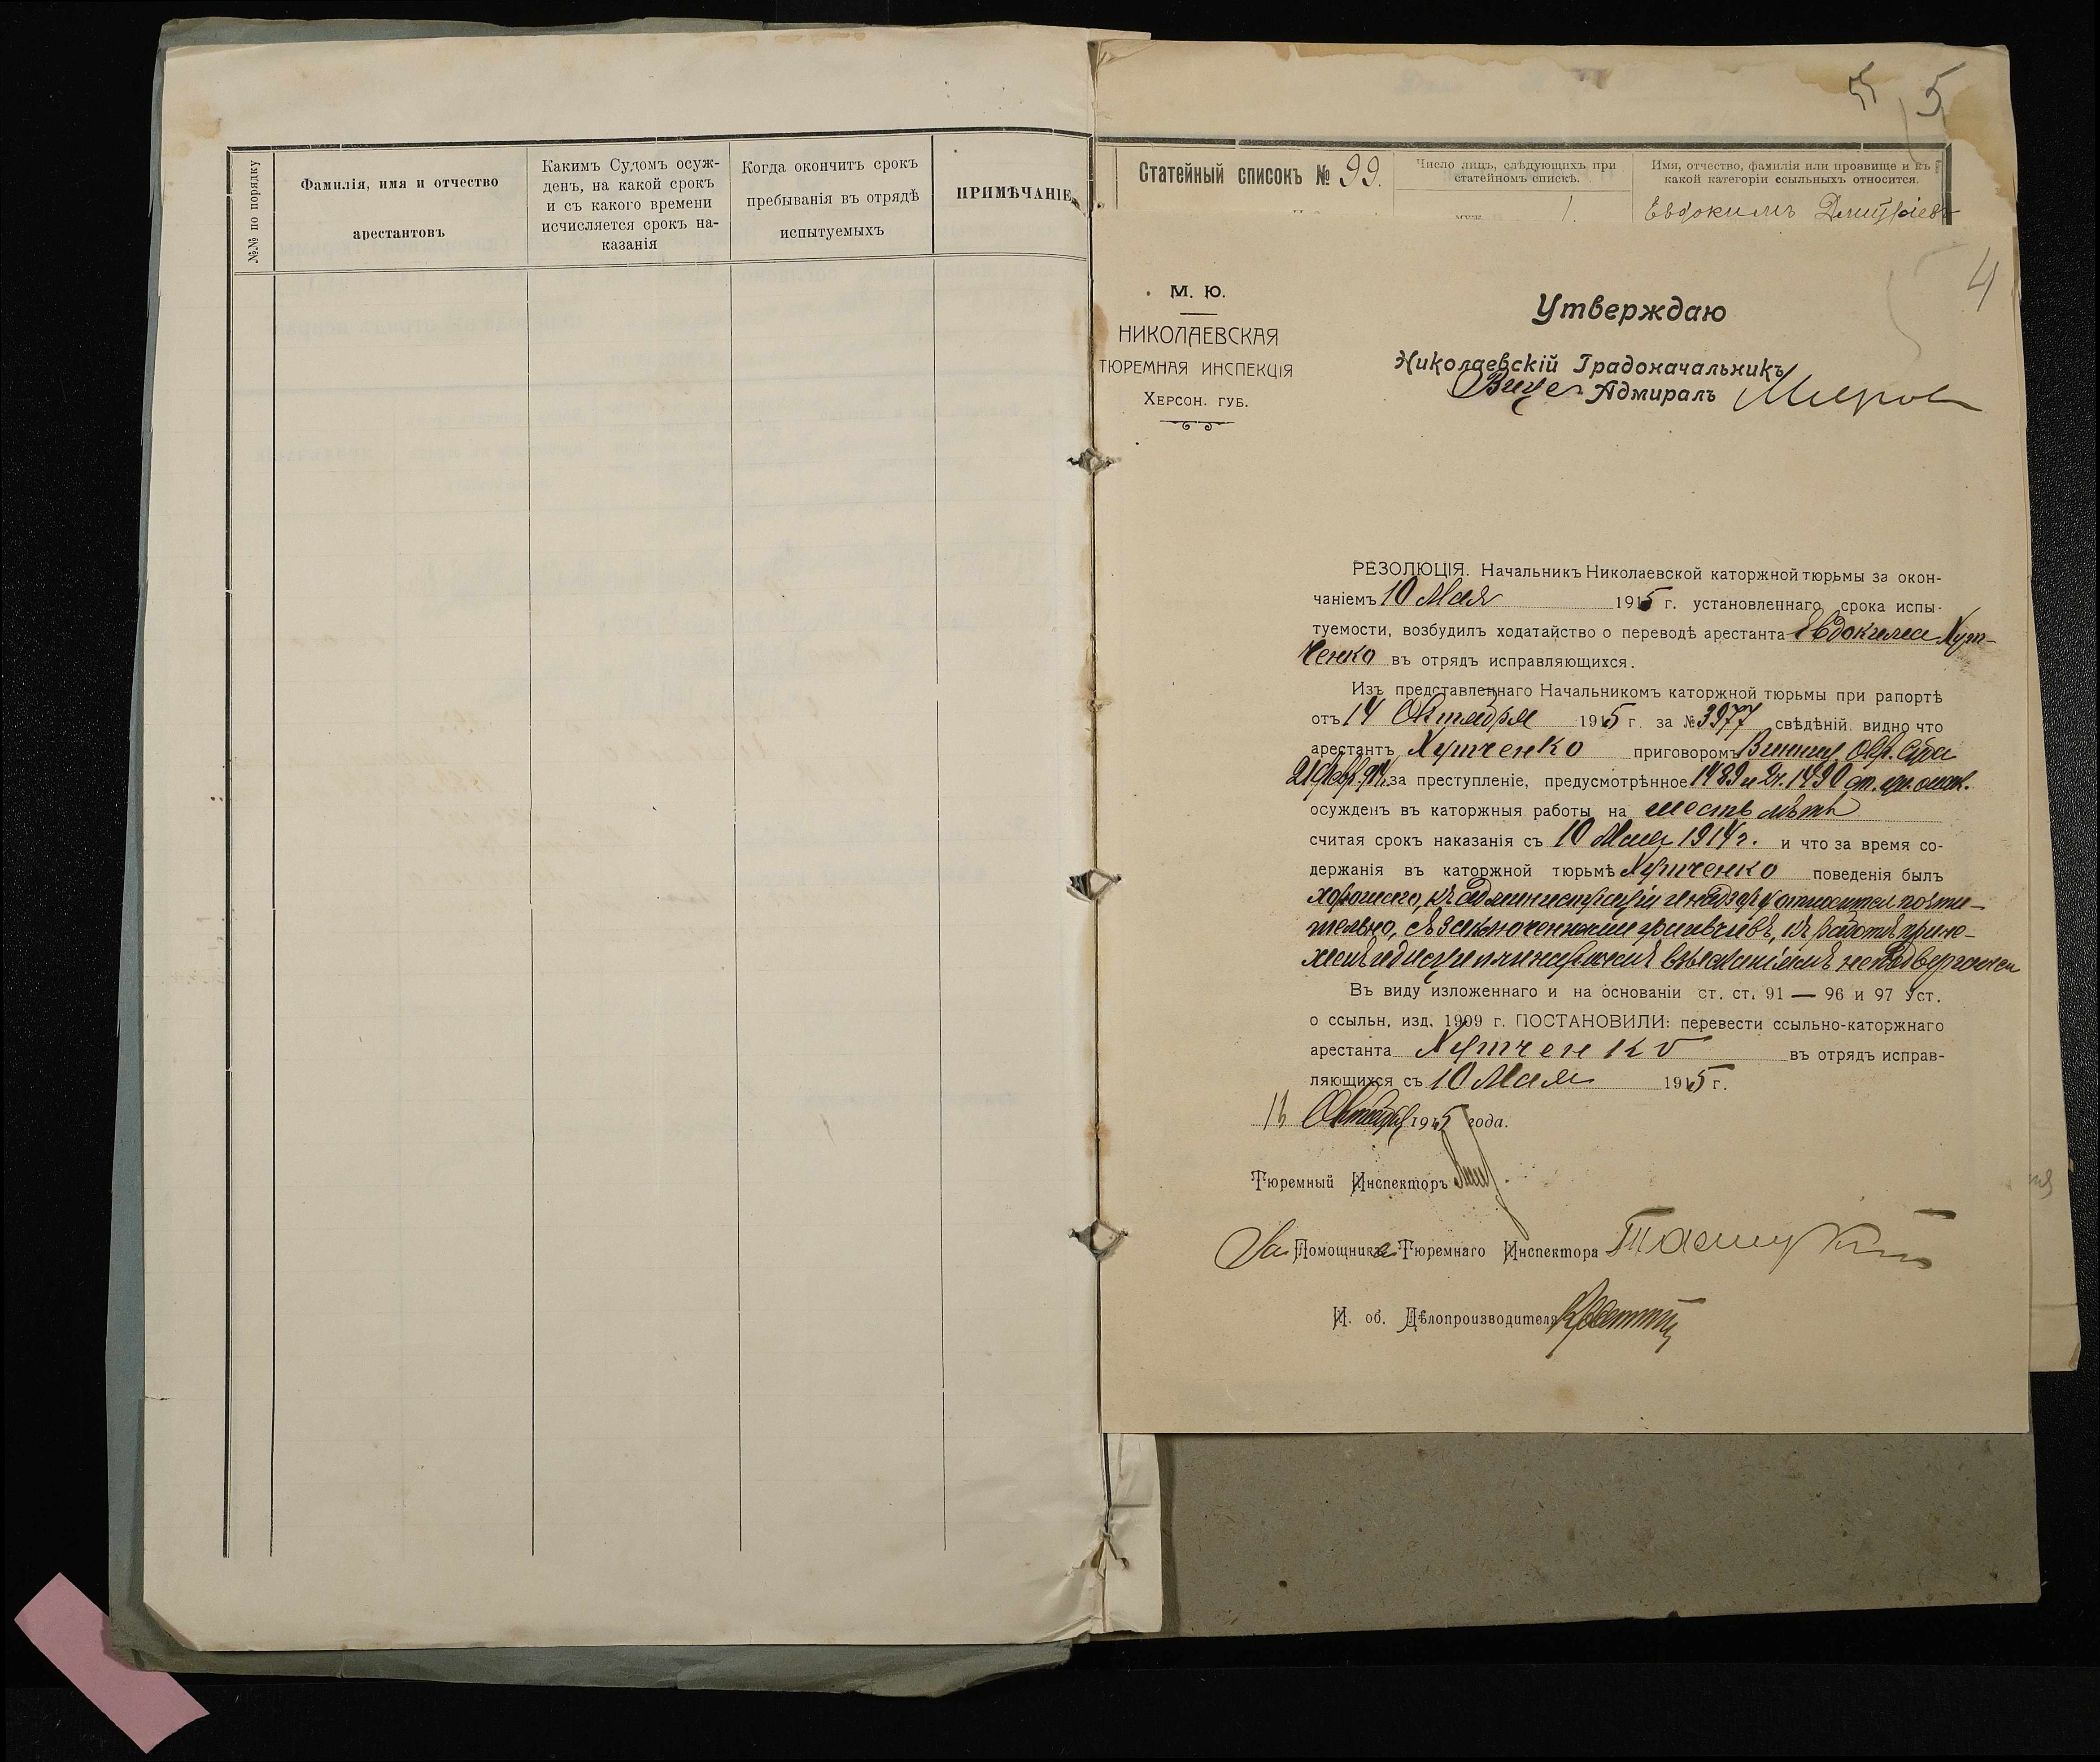 №№ по порядку
Фамилія, имя и отчество
арестантовъ
Какимъ Судомъ осуж-
денъ, на какой срокъ
и съ какого времени
исчисляется срокъ на-
казанія
Когда окончитъ срокъ
пребыванія въ отрядѣ
испытуемыхъ
ПРИМѢЧАНІЕ
5
Статейный списокъ № 99.
Число лицъ, слѣдующихъ при
статейномъ спискѣ.
муж. 1.
Имя, отчество, фамилія или прозвище и къ
какой категоріи ссыльныхъ относится.
Евдокимъ Дмитріевъ
4
М. Ю.
НИКОЛАЕВСКАЯ
ТЮРЕМНАЯ ИНСПЕКЦІЯ
ХЕРСОН. ГУБ.
Утверждаю
Николаевскій Градоначальникъ
Вице-Адмиралъ
РЕЗОЛЮЦІЯ. Начальникъ Николаевской каторжной тюрьмы за окон-
чаніемъ 10 Мая 1915 г. установленнаго срока испы-
туемости, возбудилъ ходатайство о переводѣ арестанта Евдокима Хут-
ченко въ отрядъ исправляющихся.
Изъ представленнаго Начальникомъ каторжной тюрьмы при рапортѣ
отъ 14 Октября 1915 г. за № 3977 свѣдѣній видно что
арестантъ Хутченко приговоромъ Винниц. Окр. Суда
21 Февр. 914 г. за преступленіе, предусмотрѣнное 1489 и 2 ч. 1490 ст. ул. о нак.
осужденъ въ каторжныя работы на шесть лѣтъ
считая срокъ наказанія съ 10 Мая 1914 г. и что за время со-
держанія въ каторжной тюрьмѣ Хутченко поведенія былъ
хорошаго, къ администраціи и надзору относится почти-
тельно, съ заключенными уживчивъ, къ работѣ приле-
женъ и дисциплинарнымъ взысканіямъ не подвергался
Въ виду изложеннаго и на основаніи ст. ст. 91 — 96 и 97 Уст.
о ссыльн. изд. 1909 г. ПОСТАНОВИЛИ: перевести ссыльно-каторжнаго
арестанта Хутченко въ отрядъ исправ-
ляющихся съ 10 Мая 1915 г.
16 Октября 1915 года.
Тюремный Инспекторъ
За Помощника Тюремнаго Инспектора
И. об. Дѣлопроизводителя